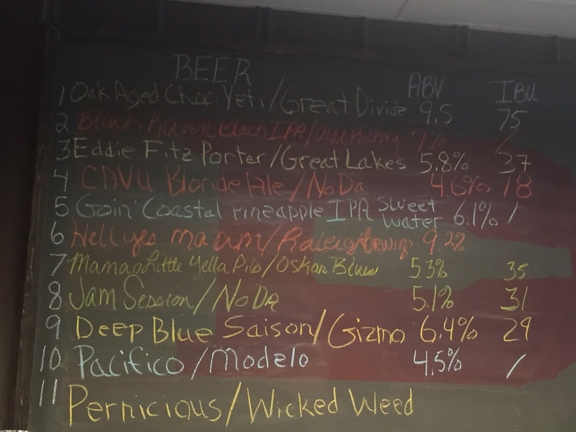 BEER ABV IBU
1 Oak Aged Choc. Yeti/Great Divide 9.5 75
2 Black Raven Black IPA/ /
3 Eddie Fitz Porter/Great Lakes 5.8% 37
4 CAVU Blonde Ale/NoDa 4.6% 18
5 Goin' Coastal Pineapple IPA Sweet Water 6.1% /
6 Hell yes ma am/ 9.22
7 Mama Little Yella Pils/Oskar Blues 5.3% 35
8 Jam Session/NoDa 5.1% 31
9 Deep Blue Saison/Gizmo 6.4% 29
10 Pacifico/Modelo 4.5% /
11 Pernicious/Wicked Weed